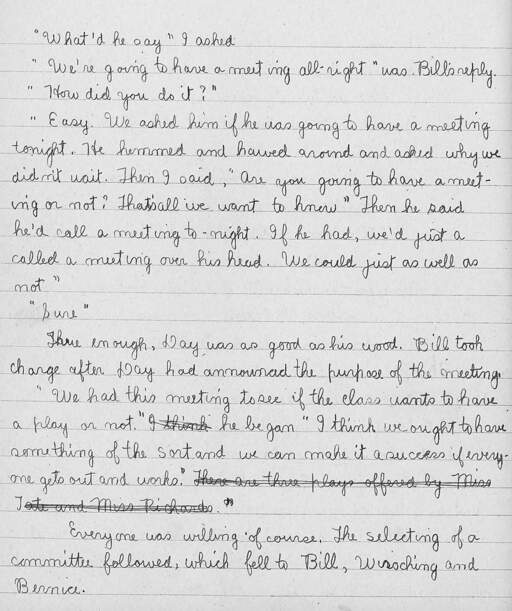 "What'd he say" I asked
"We're going to have a meeting all-right" was Bill's reply.
"How did you do it?"
"Easy. We asked him if he was going to have a meeting
tonight. He hemmed and hawed around and asked why we
didn't wait. Then I said, "Are you going to have a meet-
ing or not? That's all we want to know" Then he said
he'd call a meeting to-night. If he had, we'd just a
called a meeting over his head. We could just as well as
not"
"Sure"
True enough, Day was as good as his wood. Bill took
charge after Day had announced the purpose of the meeting.
"We had this meeting to see if the class wants to have
a play or not." I think he began "I think we ought to have
something of the sort and we can make it a success if every-
one gets out and works." There are three plays offered by Miss
Tate and Miss Richards."
Everyone was willing of course. The selecting of a
committee followed, which fell to Bill, and
Bernice.